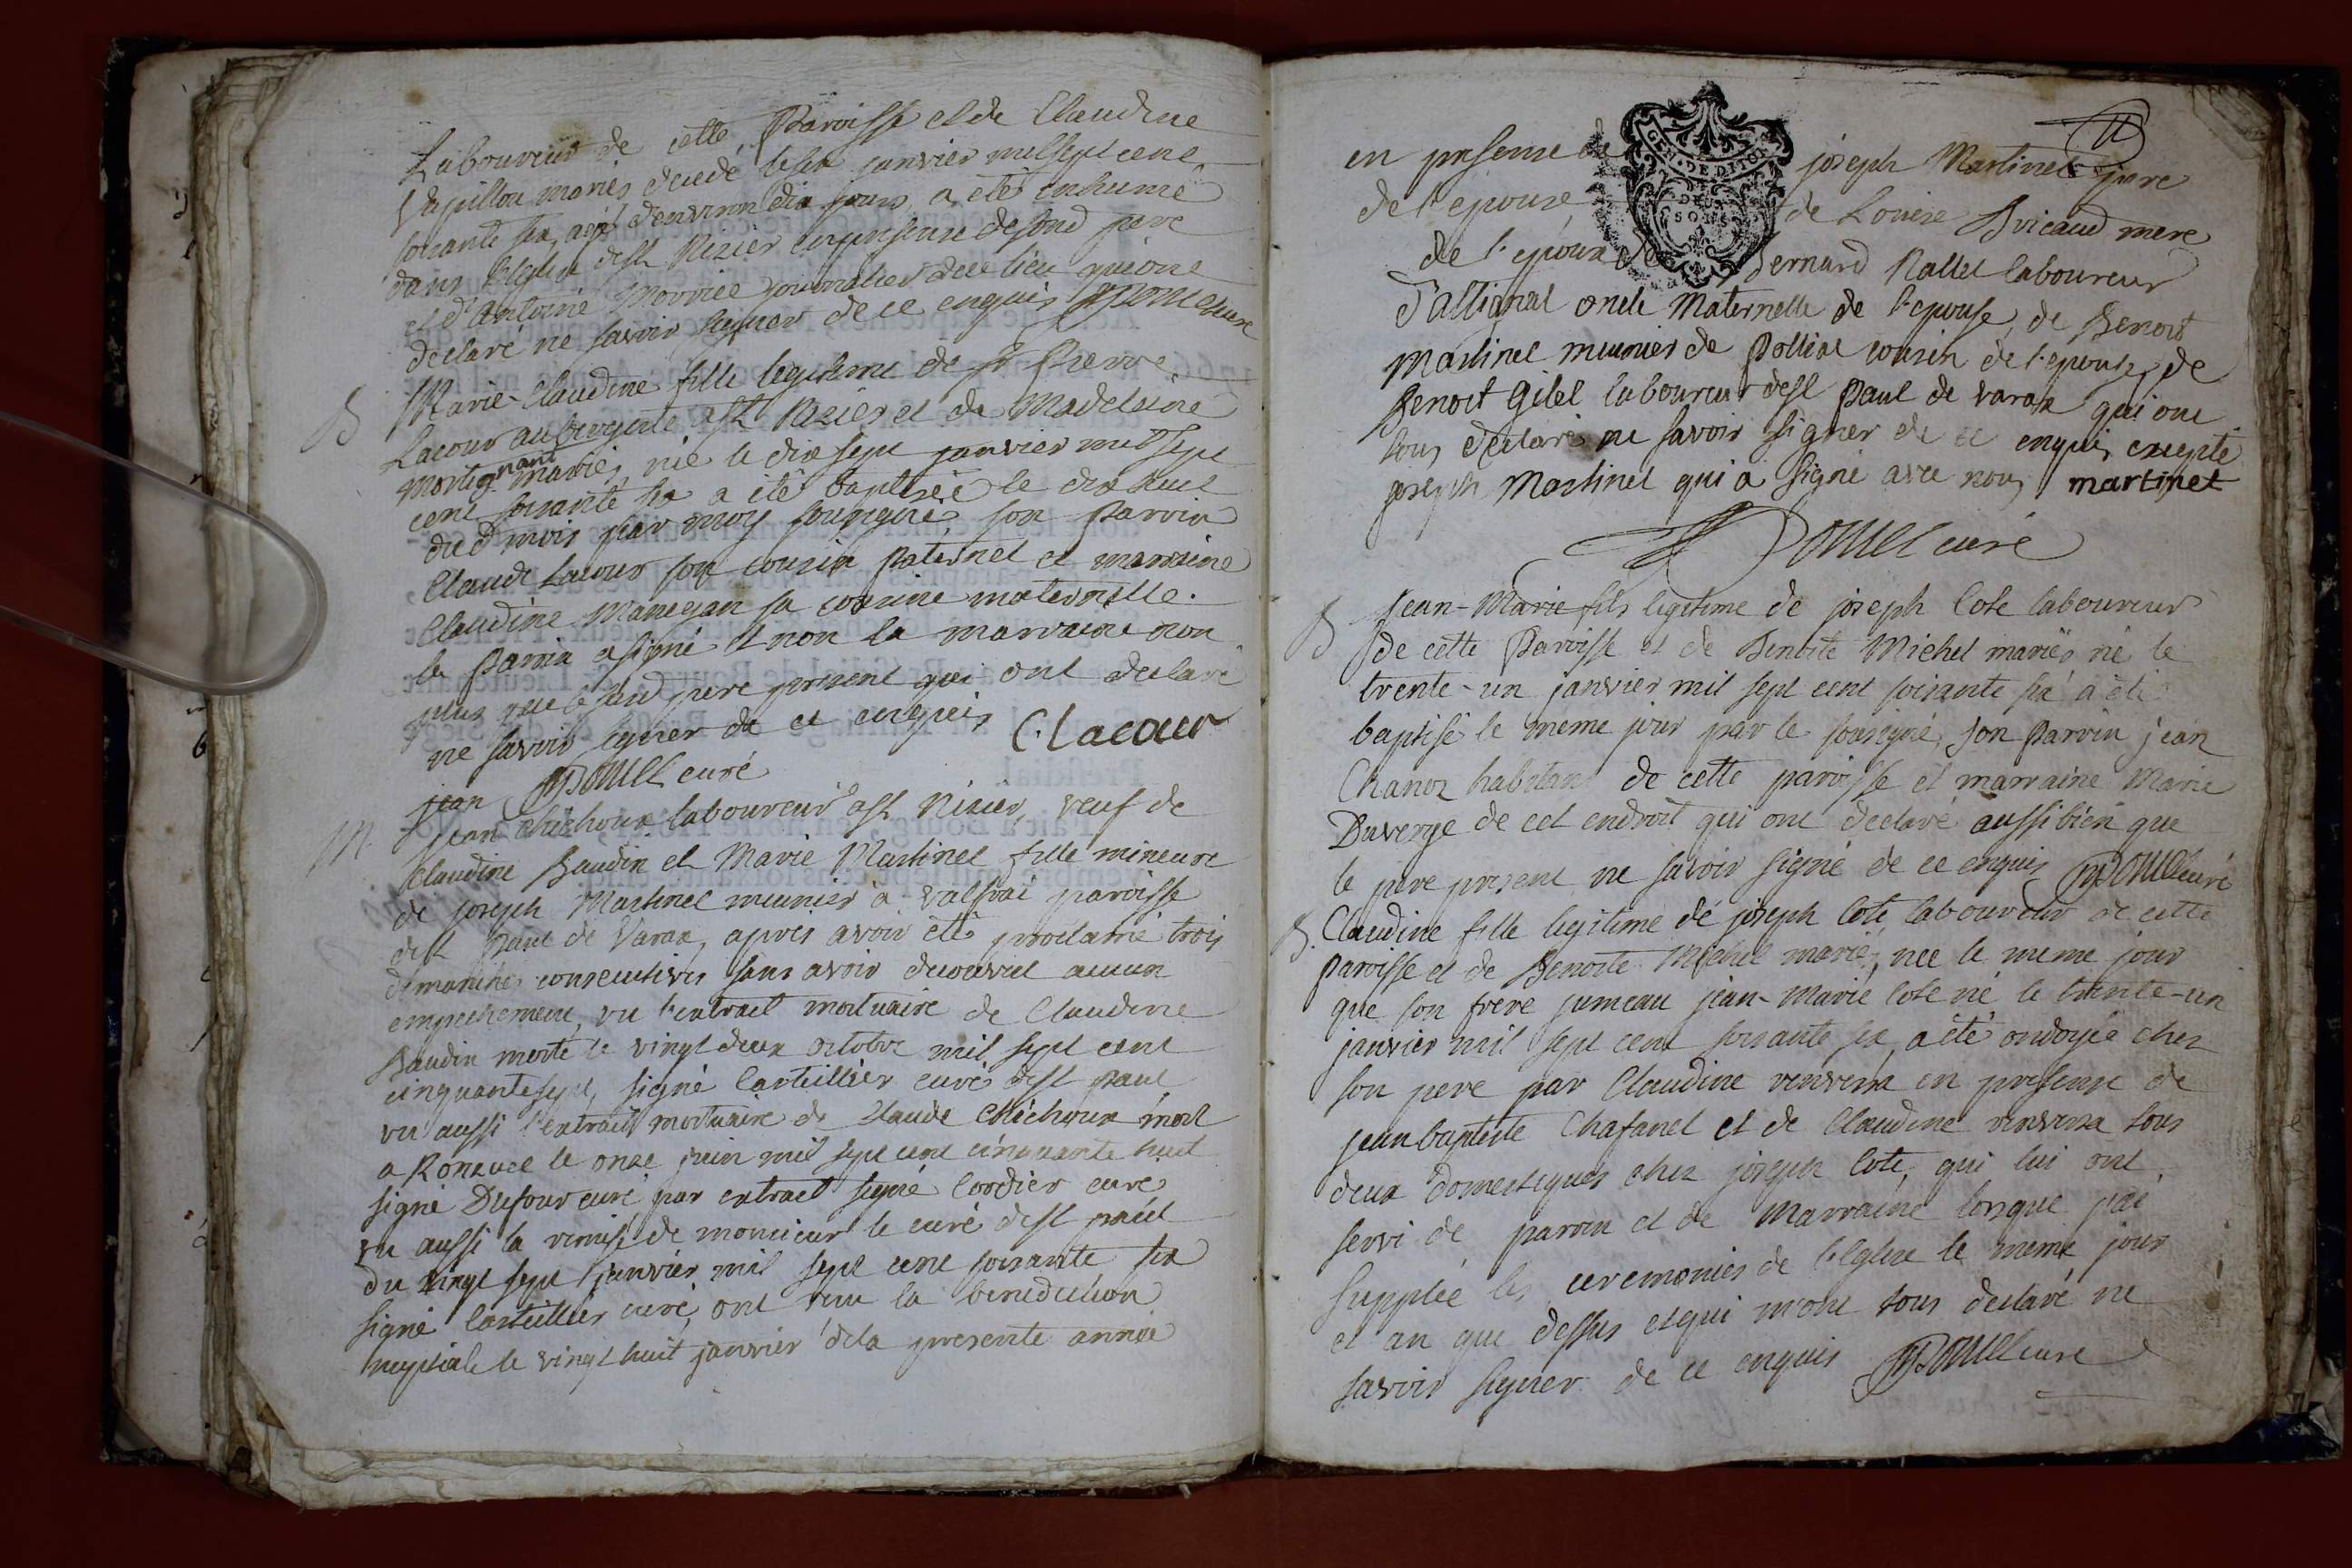 Laboureur de cette Paroisse et de Claudine
Papillon mariés, decedé le six janvier mil sept cent
soixante six, agé d'environ dix jours, a été inhumé
dans l'Eglise de St Nizier en presence de son d pere
et d'Antoine Morriee journalier dece lieu qui ont
declaré ne savoir signer de ce enquis Ponccet curé
B
Marie-Claudine fille legitime de Sr Pierre
Lacour aubergiste a St Nizier et de Madelaine
Mortignant mariés, née le dix sept janvier mil sept
cent soixante six a été baptisée le dix huit
du d mois par moy sousigné, son parrin
Claude Lacour son cousin paternel et marraine
Claudine Manegan sa cousine maternelle.
le parrin a signé et non la marraine non
plus que le sus d pere present qui ont declaré
ne savoir signer de ce enquis C. Lacour
jean Poncet curé
M.
jean Chichoux laboureur a St Nizier, veuf de
Claudine Baudin et Marie Martinet fille mineure
de joseph Martinet meunier à valfrai paroisse
de St Paul de Varax, apres avoir été proclamé trois
dimanches consecutives sans avoir decouvert aucun
empechement, vu l'extrait mortuaire de Claudine
Baudin morte le vingt deux octobre mil sept cent
cinquante sept, signé Carteillier curé de St Paul
vu aussi l'extrait mortuaire de Claude Chichoux mort
a Roneuel le onze juin mil sept cent cinquante huit
signé Dufour curé par extrait signé Cordier curé
vu aussi la remise de monsieur le curé de St paul
du vingt sept janvier mil sept cent soixante six
signé Carteillier curé, ont reçu la benediction
nuptiale le vingt huit janvier de la presente année
11
en presence de joseph Martinet pere
de l'epouse, de Louise Bricaud mere
de l'epoux, de Bernard Rallet laboureur
d'attignat oncle Maternelle de l'epouse, de Benoit
Martinet meunier de Polliat cousin de l'epouse, de
Benoit Gilet laboureur de St Paul de varax qui ont
tous declaré ne savoir signer de ce enquis, excepté
joseph Martinet qui a signé avec nous martinet
Poncet curé
GEN. DE DIJON
DEUX
SOLS
B
Jean-Marie fils legitime de joseph Cote laboureur
de cette Paroisse et de Benoite Michel mariés né le
trente-un janvier mil sept cent soixante six a été
baptisé le meme jour par le sousigné, son Parrin jean
Chanoz habitant de cette paroisse et marraine Marie
Duverge de cet endroit qui ont declaré aussi bien que
le pere present ne savoir signé de ce enquis Poncet curé
B.
Claudine fille legitime de joseph Cote, laboureur de cette
paroisse et de Benoite Michel mariés, née le meme jour
que son frere jumeau jean-Marie Cote né le trente-un
janvier mil sept cent soixante six, a été ondoyée chez
son pere par Claudine venvera en presence de
jean baptiste Chafanel et de Claudine venvera tous
deux domestiques chez joseph Cote, qui lui ont
servi de parrin et de Marraine lorsque j'ai
supplée les ceremonies de l'Eglise le meme jour
et an que dessus et qui m'ont tous declaré ne
savoir signer de ce enquis Poncet curé